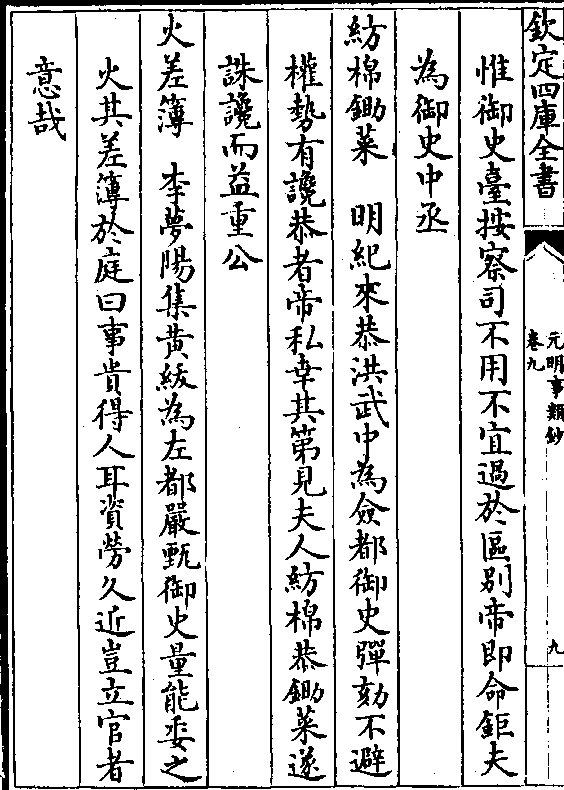 欽定四庫全書
元明事類鈔
卷九
九
惟御史臺按察司不用不宜過於區别帝即命鉅夫
為御史中丞
紡棉鋤菜　明紀來恭洪武中為僉都御史彈劾不避
權勢有讒恭者帝私幸其第見夫人紡棉恭鋤菜遂
誅讒而益重公
火差簿　李夢陽集黄紱為左都嚴甄御史量能委之
火其差簿於庭曰事貴得人耳資勞久近豈立官者
意哉